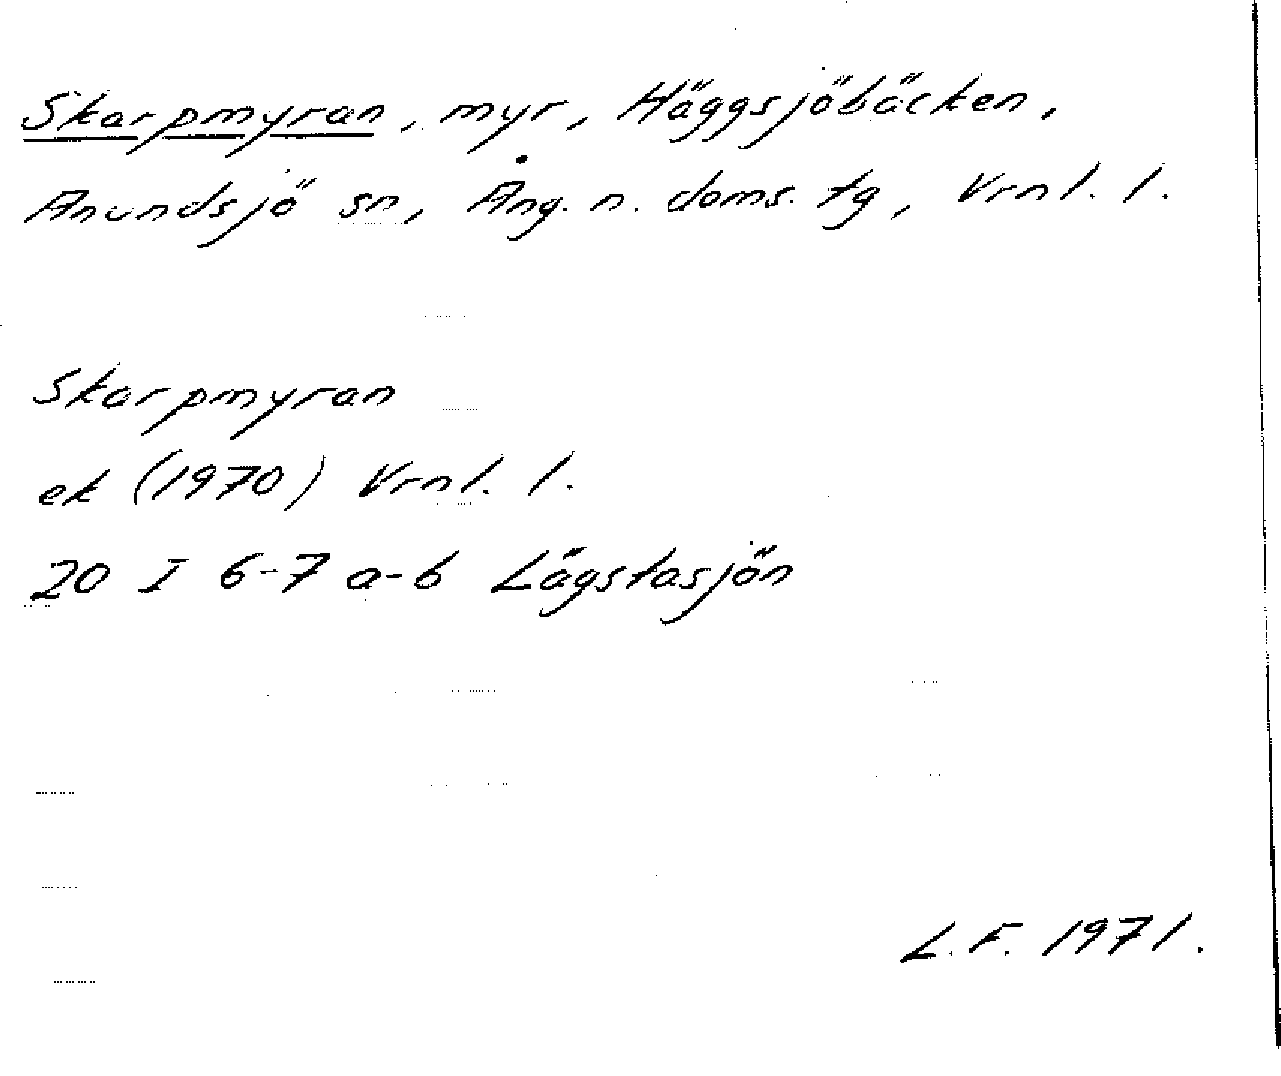 Skarpmyran, myr, Häggsjöbäcken,
Anundsjö sn, Ång. n. doms. tg, Vrnl. l.
Skarpmyran
ek (1970) Vrnl. l.
20 I 6-7 a-b Lägstasjön
L.F. 1971.